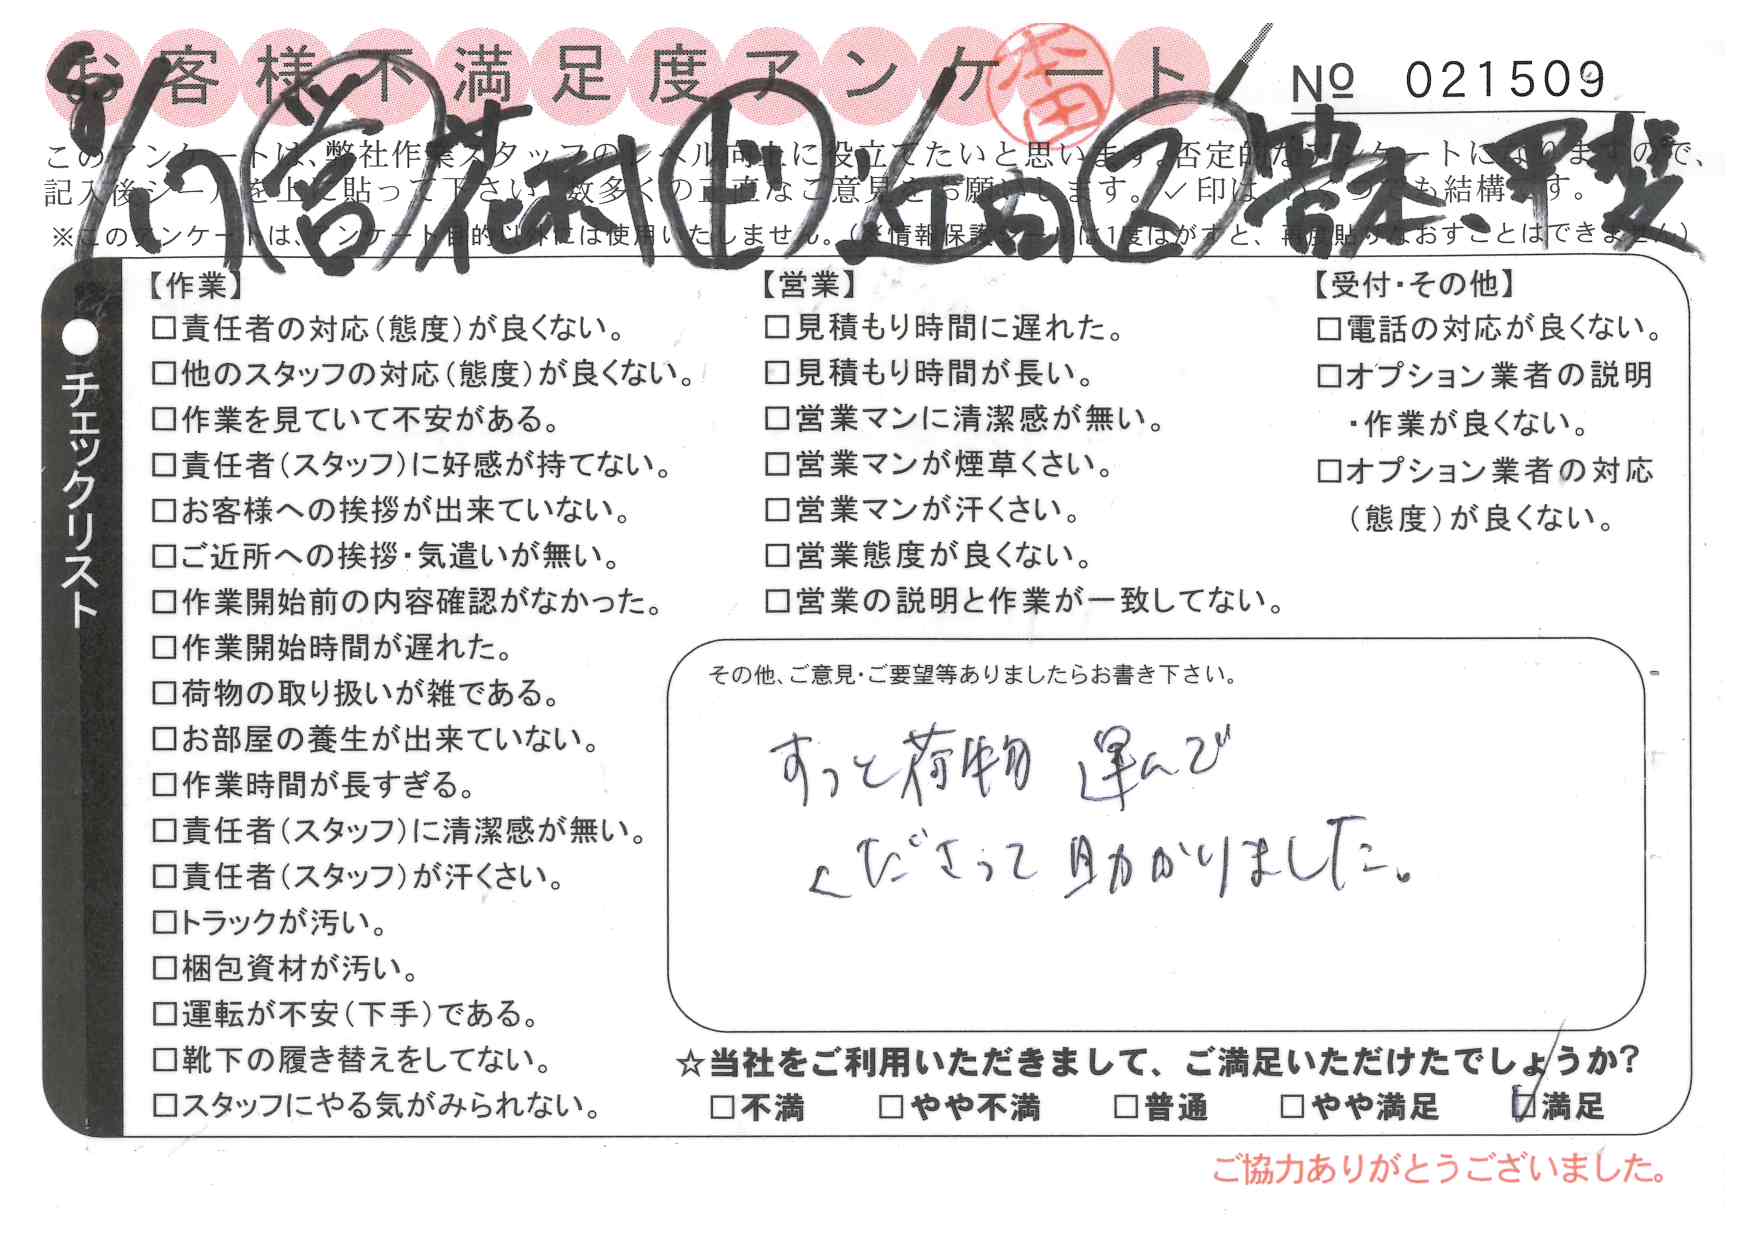 お客様不満足度アンケート
本田
№ 021509
8/17 営 花村 ± 辺 ス 青木、甲斐
このアンケートは、弊社作業スタッフのレベル向上に役立てたいと思います。否定的なアンケートになりますので、
記入後シールを上に貼って下さい。数多くの正直なご意見をお願いします。✓印は、いくつでも結構です。
※このアンケートは、アンケート目的以外には使用いたしません。(※情報保護シールは1度はがすと、再度貼りなおすことはできません)
●チェックリスト
【作業】
□責任者の対応(態度)が良くない。
□他のスタッフの対応(態度)が良くない。
□作業を見ていて不安がある。
□責任者(スタッフ)に好感が持てない。
□お客様への挨拶が出来ていない。
□ご近所への挨拶・気遣いが無い。
□作業開始前の内容確認がなかった。
□作業開始時間が遅れた。
□荷物の取り扱いが雑である。
□お部屋の養生が出来ていない。
□作業時間が長すぎる。
□責任者(スタッフ)に清潔感が無い。
□責任者(スタッフ)が汗くさい。
□トラックが汚い。
□梱包資材が汚い。
□運転が不安(下手)である。
□靴下の履き替えをしてない。
□スタッフにやる気がみられない。
【営業】
□見積もり時間に遅れた。
□見積もり時間が長い。
□営業マンに清潔感が無い。
□営業マンが煙草くさい。
□営業マンが汗くさい。
□営業態度が良くない。
□営業の説明と作業が一致してない。
【受付・その他】
□電話の対応が良くない。
□オプション業者の説明
・作業が良くない。
□オプション業者の対応
(態度)が良くない。
その他、ご意見・ご要望等ありましたらお書き下さい。
ずっと荷物 運んで
くださって助かりました。
☆当社をご利用いただきまして、ご満足いただけたでしょうか?
□不満 □やや不満 □普通 □やや満足 ☑満足
ご協力ありがとうございました。